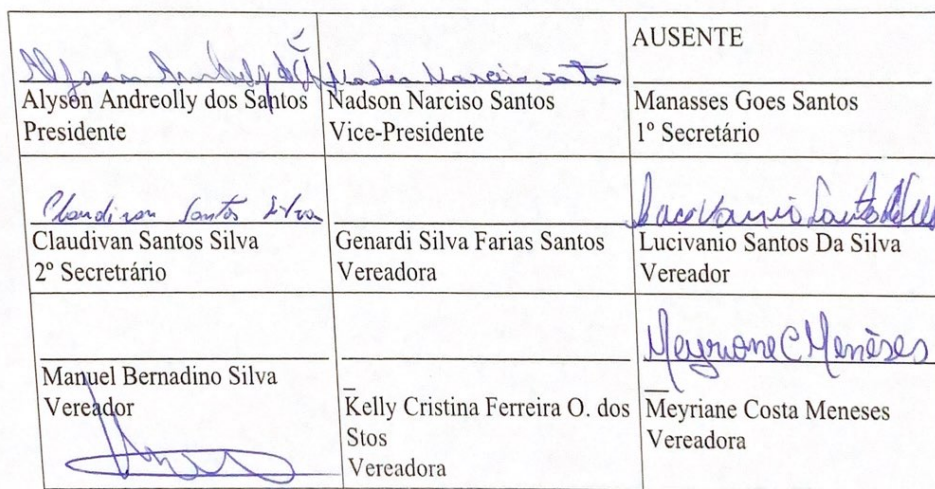 AUSENTE
Alyson Andreolly dos Santos
Presidente
Nadson Narciso Santos
Vice-Presidente
Manasses Goes Santos
1º Secretário
Claudivan Santos Silva
Claudivan Santos Silva
2º Secretrário
Genardi Silva Farias Santos
Vereadora
Lucivanio Santos Da Silva
Vereador
Manuel Bernadino Silva
Vereador
Kelly Cristina Ferreira O. dos
Stos
Vereadora
Meyriane C Meneses
Meyriane Costa Meneses
Vereadora